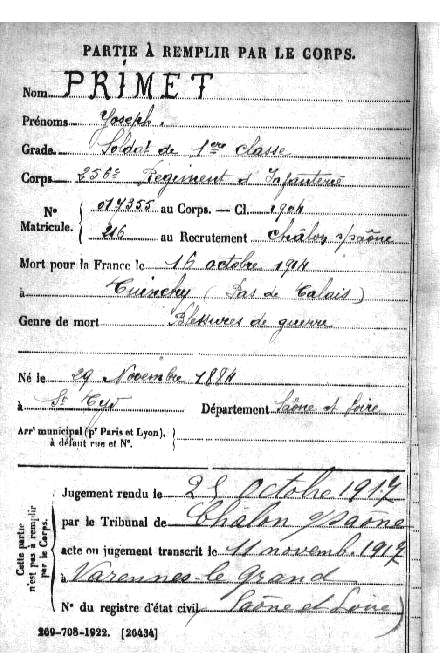 PARTIE À REMPLIR PAR LE CORPS.
Nom PRIMET
Prénoms Joseph.
Grade Soldat de 1ere classe
Corps 256e Régiment d'Infanterie
N° Matricule. { 017355 au Corps. — Cl. 1904
216 au Recrutement Châlon s/Saône
Mort pour la France le 15 octobre 1914
à Cuinchy (Pas de Calais)
Genre de mort Blessures de guerre
Né le 29 Novembre 1884
à St Cyr Département Saône et Loire
Arrt municipal (pr Paris et Lyon), à défaut rue et N°. }
Cette partie n'est pas à remplir par le Corps.
Jugement rendu le Octobre 1917
par le Tribunal de Châlon s/Saône
acte ou jugement transcrit le 11 novemb. 1917
à Varennes-le Grand
N° du registre d'état civil (Saône et Loire)
269-708-1922. [26434]